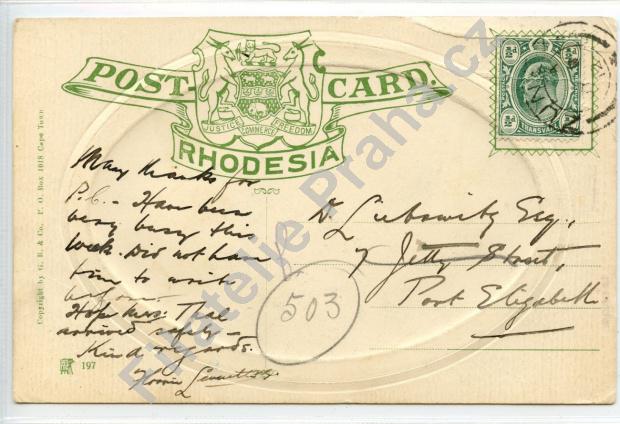 POST CARD.
JUSTICE COMMERCE FREEDOM
RHODESIA
½d ½d
TRANSVAAL
Many thanks for
P.C. – Have been
very busy this
week. Did not have
time to write
before.
Hope Mrs. Thal
arrived safely –
Kind regards.
D. Liebowitz Esq.,
7 Jetty Street,
Port Elizabeth
503
Copyright by G. B. & Co. P. O. Box 1018 Cape Town
197
Filatelie Praha.cz